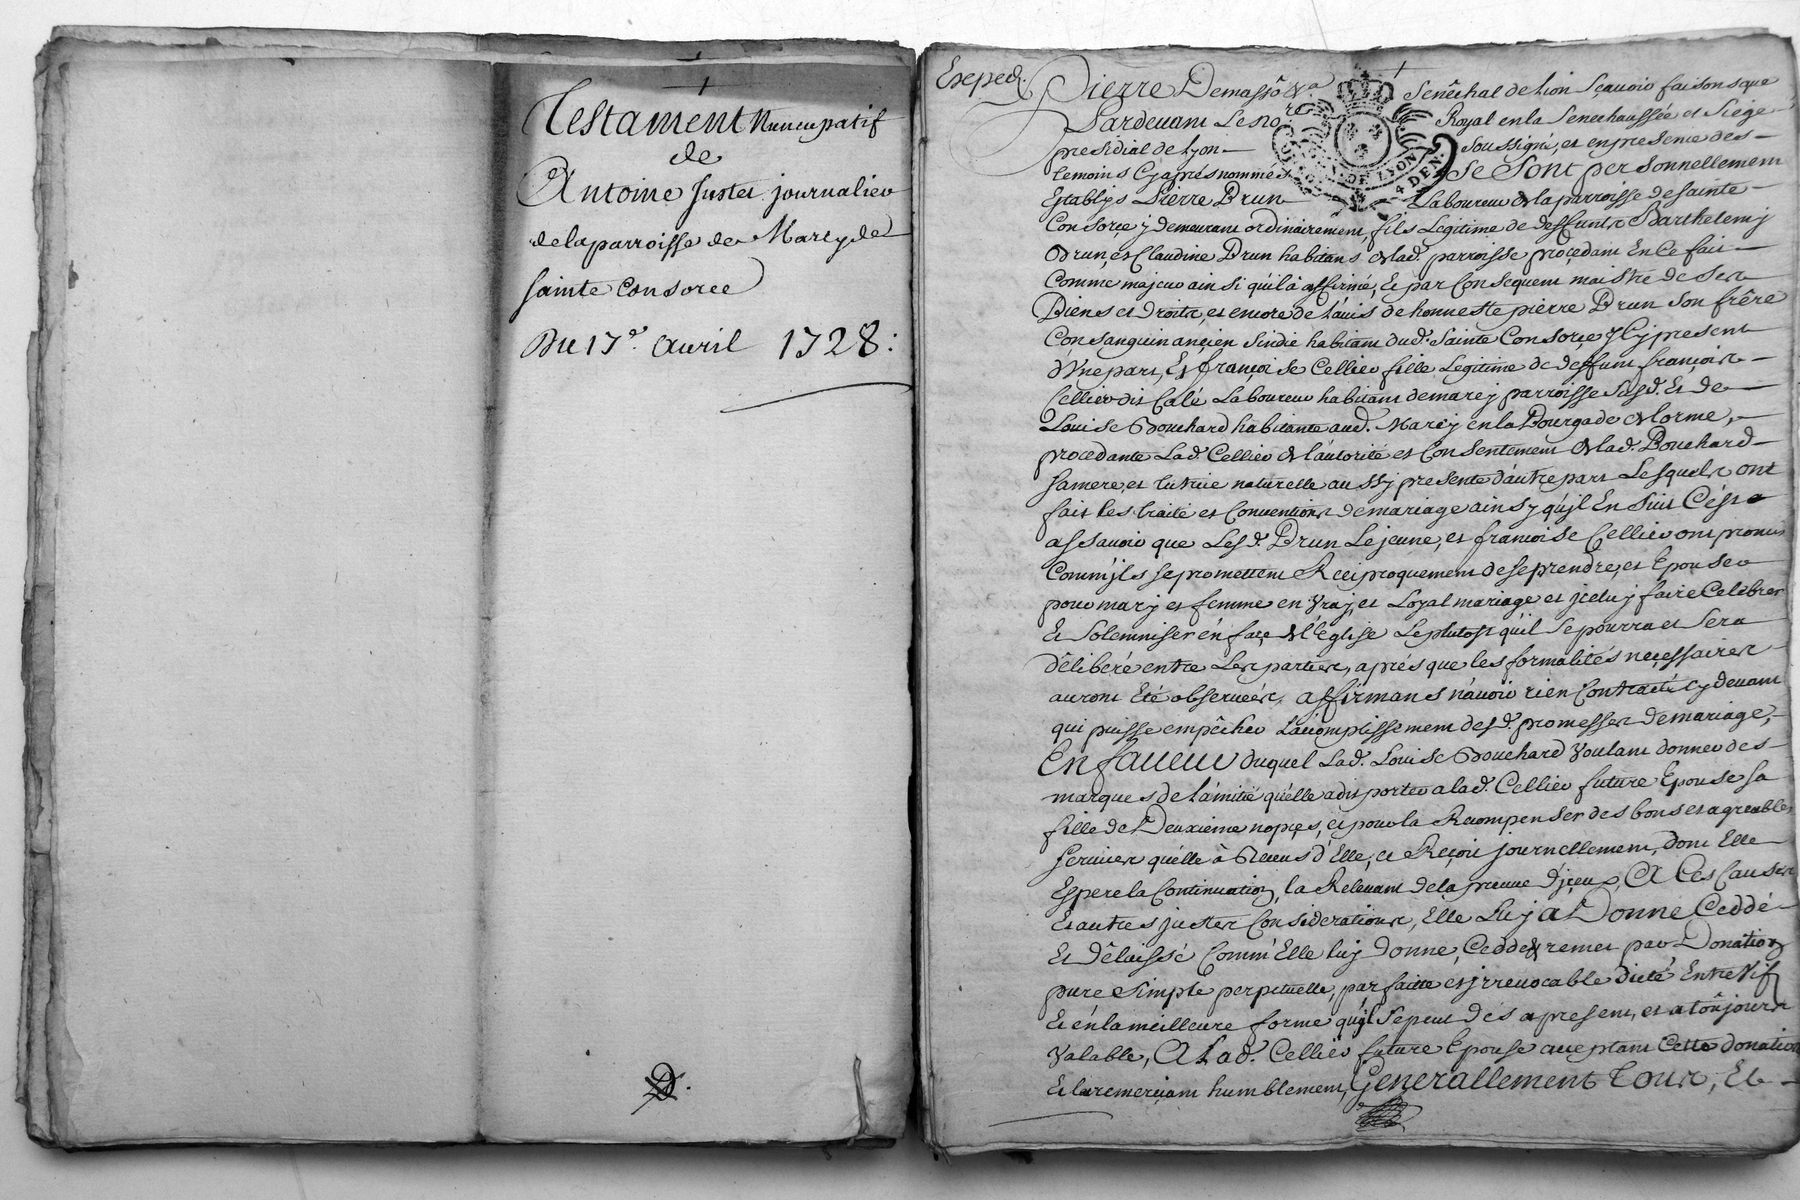 Testament Nuncupatif
de
Antoine Justet journalier
de la parroisse de Marcy de
sainte Consorce
Du 17e. Avril 1728:
Exped.
Pierre Demasso &a Senêchal de Lion Sçavoir faisons que
Pardevant Le no.re Royal en la Senechaussée et Siège
presidial de Lyon soussigné, et en presence des
temoins Cyaprés nommés se sont personnellement
Establys Pierre Brun Laboureur de la parroisse de sainte
Consorce y demeurant ordinairement, fils Legitime de deffunts Barthelemj
Brun, et Claudine Brun habitans de lad. parroisse procedant En Ce fait
Comme majeur ainsi qu'il à affirmé, Et par Consequent maistre de ses
Biens et Droits, et encore de l'avis de honneste pierre Brun son frêre
Consanguin ancien sindic habitant dud. Sainte Consorce Icy present
d'Une part, Et françoise Cellier fille Legitime de deffunt françois
Cellier dit Calé Laboureur habitant de marcy parroisse susd. Et de
Louise Bouchard habitante aud. Marcy en la Bourgade de lorme,
procedante Lad. Cellier de l'autorité et Consentement de lad. Bouchard
sa mere, et tutrice naturelle aussy presente d'autre part Lesquels ont
fait les traité et Conventions de mariage ainsy qu'jl En suit C'est
assavoir que Lesd. Brun Le jeune, et francoise Cellier ont promis
Comm'jls se promettent Reciproquement de se prendre, et Epouser
pour mary et femme en Vray, et Loyal mariage et jceluy faire Celebrer
Et Solemniser en face de l'Eglise Le plutost qu'il se pourra et sera
dêliberé entre Les parties, aprés que les formalités neçessaires
auront Eté observées, affirmans n'avoir rien Contracté cy devant
qui puisse empêcher L'accomplissement desd. promesses de mariage,
En faveur duquel Lad. Louise Bouchard Voulant donner des
marques de l'amitié qu'elle a dit porter a lad. Cellier future Epouse sa
fille de Deuxieme nopçes, et pour la Recompenser des bons et agreables
services qu'elle à Receus d'Elle, et Reçoit journellement, dont Elle
Espere la Continuation, la Relevant de la preuve d'jceux, A Ces Causes
Et autres justes Considerations, Elle Luy a Donné Ceddé
Et Dêlaissé Comm'Elle luy donne, Cedde & remet par Donation
pure simple perpetuelle, parfaitte et jrrevocable dicte Entre Vifs
Et en la meilleure forme qu'jl se peut dés a present, et a toûjours
Valable, A Lad. Cellier future Epouse acceptant Cette donation
Et la remerciant humblement, Generallement Tous, Et